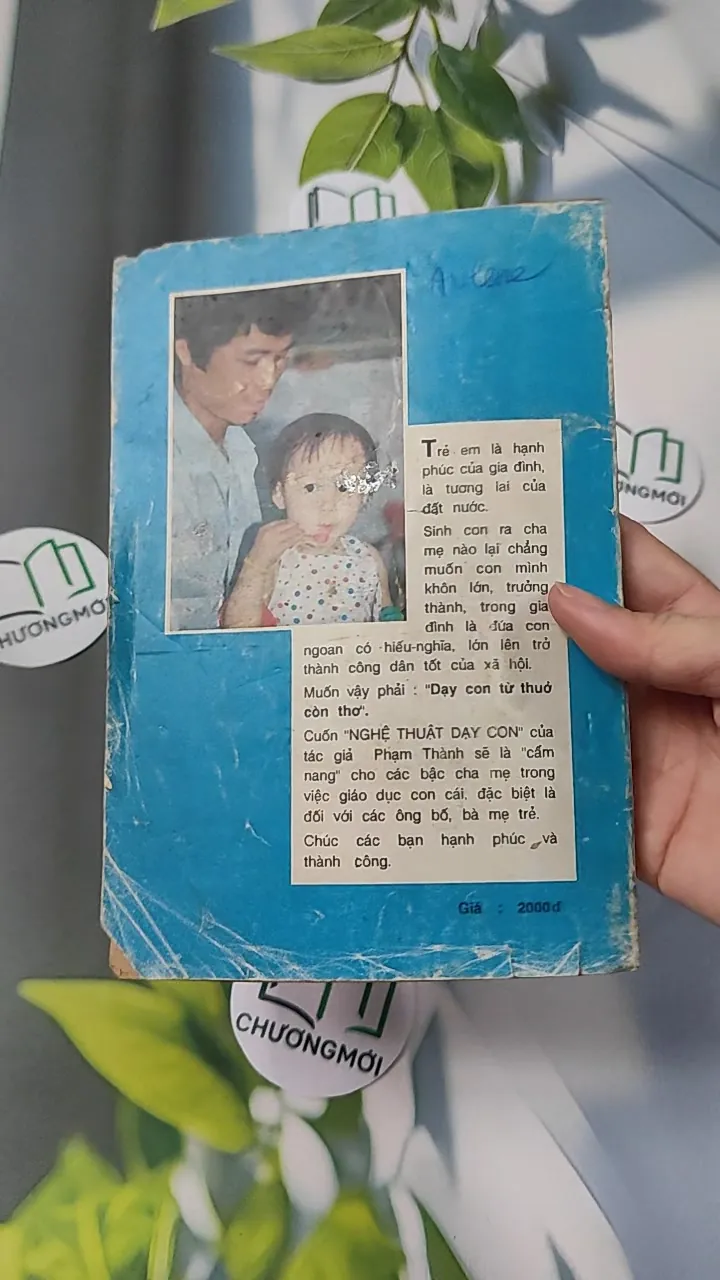 Trẻ em là hạnh
phúc của gia đình,
là tương lai của
đất nước.
Sinh con ra cha
mẹ nào lại chẳng
muốn con mình
khôn lớn, trưởng
thành, trong gia
đình là đứa con
ngoan có hiếu-nghĩa, lớn lên trở
thành công dân tốt của xã hội.
Muốn vậy phải : "Dạy con từ thuở
còn thơ".
Cuốn "NGHỆ THUẬT DẠY CON" của
tác giả Phạm Thành sẽ là "cẩm
nang" cho các bậc cha mẹ trong
việc giáo dục con cái, đặc biệt là
đối với các ông bố, bà mẹ trẻ.
Chúc các bạn hạnh phúc và
thành công.
Giá : 2000đ
CHƯƠNGMỚI